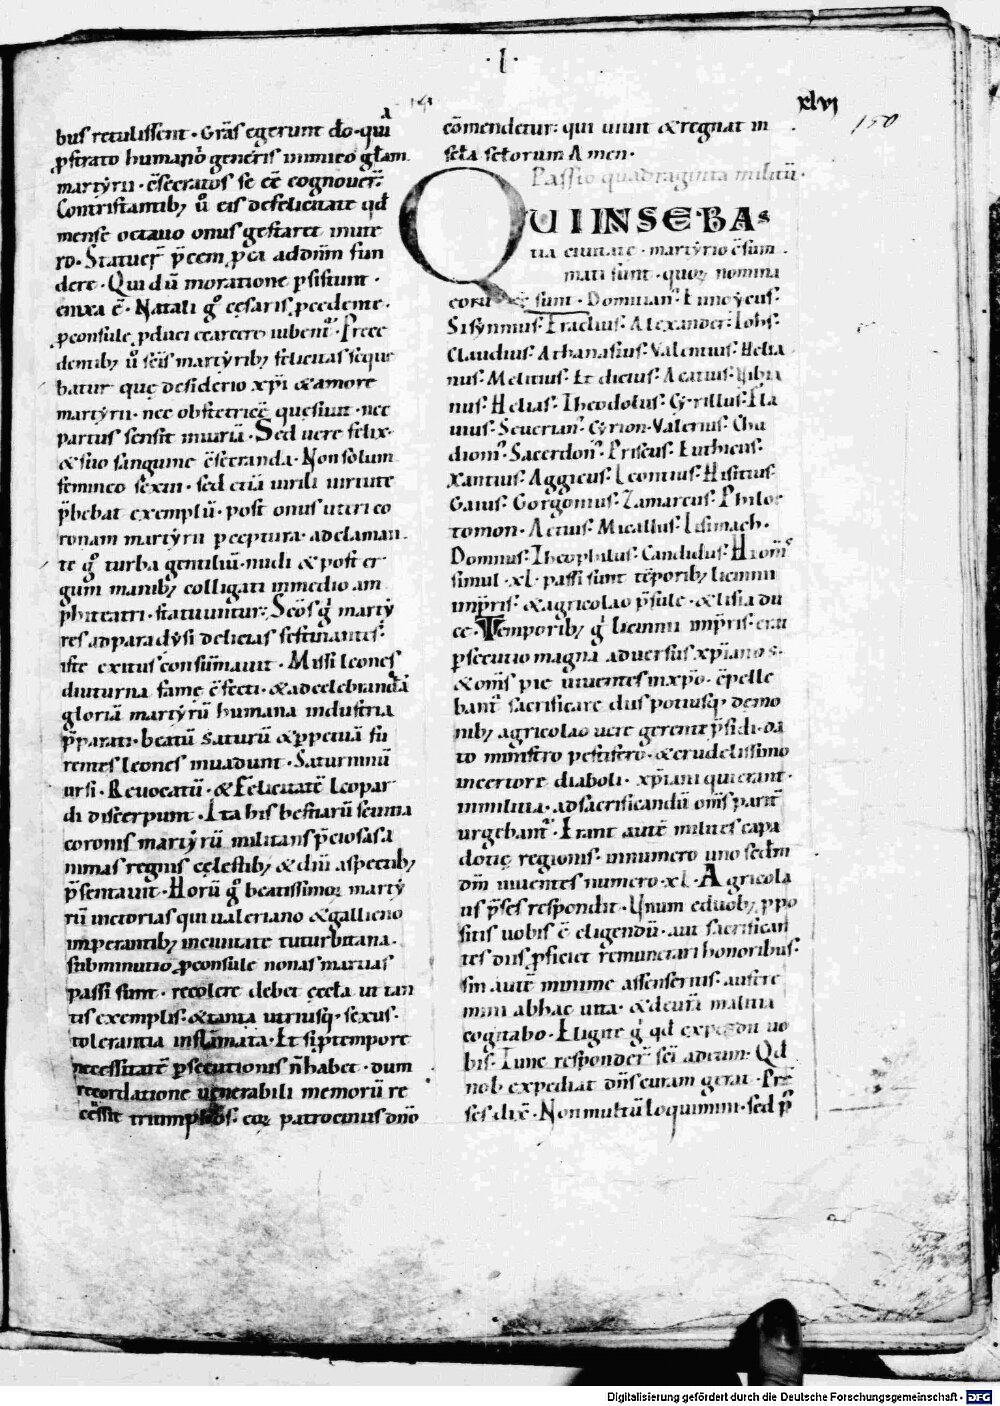 · l ·
xlvi
150
bus retulissent · Gr̄as egerunt dō · quia
ꝓstrato humani generis inimico gl̄am
martyrii · c̄secratos se eē cognouer̄
Contristantibꝫ ū eis de felicitate qđ
mense octauo onus gestaret in ute
ro · Statuer̄ p̄cem ꝓ ea ad dn̄m fun
dere · Qui dū moratione ꝑsistunt ·
enixa ē · Natali gͦ cesaris p̄cedente ·
ꝓconsule ꝓduci e carcere iubent᷑ · Prece
dentibꝫ ū sc̄is martyribꝫ felicitas seque
batur quę desiderio xp̄i & amore
martyrii · nec obstetricē quesiuit · nec
partus sensit iniuriā · Sed uere felix ·
& suo sanguine c̄secranda · Non solum
femineo sexui · sed etiā uirili uirtute
p̄bebat exemplū · post onus uteri co
ronam martyrii ꝑceptura · adclaman
te gͦ turba gentiliū · nudi & post er
gum manibꝫ colligati in medio am
phiteatri · statuuntur · Sc̄os gͥ marty
res ad paradysi delicias festinantes ·
iste exitus consūmauit · Missi leones
diuturna fame c̄fecti · & ad celebrandā
gloriā martyrū humana industria
p̄parati · beatū Saturū & ꝑpetuā fu
rentes leones inuadunt · Saturninū
ursi · Reuocatū · & Felicitatē leopar
di discerpunt · Ita his bestiarū seuitia
coronis martyrū militans p̄ciosas a
nimas regnis cęlestibꝫ & diu͞ aspectibꝫ
p̄sentauit · Horū gͦ beatissimoꝝ marty
rū uictorias qui ualeriano & gallieno
imperantibꝫ in ciuitate tuturbitana ·
sub minutio ꝓconsule nonas martias
passi sunt · recolere debet ęccl̄a ut tan
tis exemplis · & tanta utriusqꝫ sexus ·
tolerantia inflāmata · Et si p̄ tempore
necessitatē ꝑsecutionis n̄ habet · dum
recordatione uenerabili memorū re
cēssit triumphos · eoꝝ patrociniis dn̄o
cōmendetur · qui uiuit & regnat in
sc̄la sc̄lorum Amen ·
Passio quadraginta militū ·
QUI IN SEBAS
tia ciuitate · martyrio c̄sum
mati sunt · quoꝝ nomina
eorū sunt · Domitian᷒ · Eunoycus ·
Sisynnius · Eradius · Alexander · Iohs̄ ·
Claudius · Athanasius · Valentius · Helia
nus · Melitius · Et dicius · Acatius · Vibia
nus · Helias · Theodolus · Cyrillus · Fla
uius · Seuerian᷒ · Cyrion · Valerius · Chu
dion᷒ · Sacerdon᷒ · Priscus · Euthicus ·
Xantius · Aggicus · Leontius · Hisitius ·
Gaius · Gorgonius · Zamarcus · Philoc
tomon · Aetius · Micallus · Lisimach᷒ ·
Domnus · Theophilus · Candidus ·
simul · xl · passi sunt tēporibꝫ licinnii
imp̄ris · & agricolao p̄sule · & lisia du
ce · Temporibꝫ gͥ licinnii imp̄ris · erat
ꝑsecutio magna aduersus xp̄ianos ·
& om̄s pie uiuentes in xp̄o · c̄pelle
bant᷑ sacrificare diis potiusqꝫ demo
nibꝫ agricolao uice gerente p̄sidi · da
to ministro pestifero · & crudelissimo
incertore diaboli · xp̄iani qui erant ·
in militia · ad sacrificandū om̄s parit᷑
urgebant᷑ · Erant autē milites capa
docię regionis · in numero uno sedm̄
dm̄ uiuentes numero · xl · Agricola
us p̄ses respondit · Unum e duobꝫ ꝓpo
sitis uobis ē eligendū · aut sacrifican
tes diis ꝓficiet remunerari honoribus ·
sin autē minime assenseritis · aufere
mini ab hac uita · & de ūra malitia
cogitabo · Eligite gͥ qđ expedit uo
bis · Tunc responder̄ sc̄i ad eum · Qđ
nob̄ expediat dn̄s curam gerat · Pre
ses dix̄ · Non multū loquimini · sed p̄
Digitalisierung gefördert durch die Deutsche Forschungsgemeinschaft - DFG